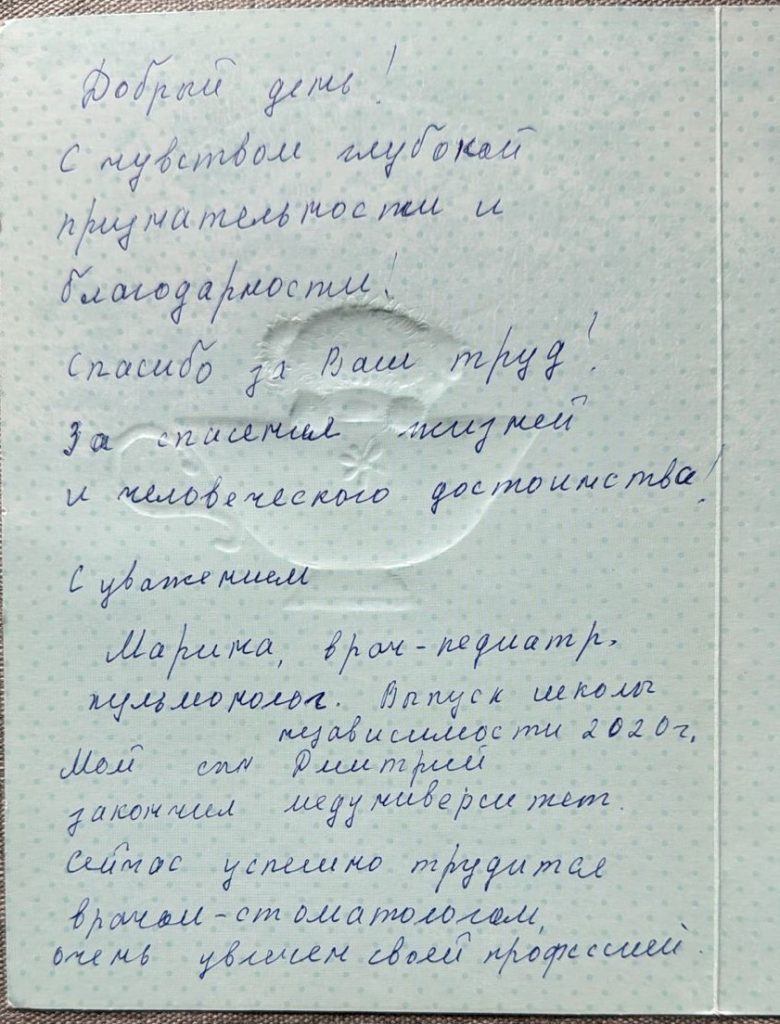 Добрый день!
С чувством глубокой
признательности и
благодарности!
Спасибо за Ваш труд!
За спасения жизней
и человеческого достоинства!
С уважением
Марина, врач-педиатр,
пульмонолог. Выпуск школы
независимости 2020г.
Мой сын Дмитрий
закончил медуниверситет.
Сейчас успешно трудится
врачом-стоматологом,
очень увлечен своей профессией.